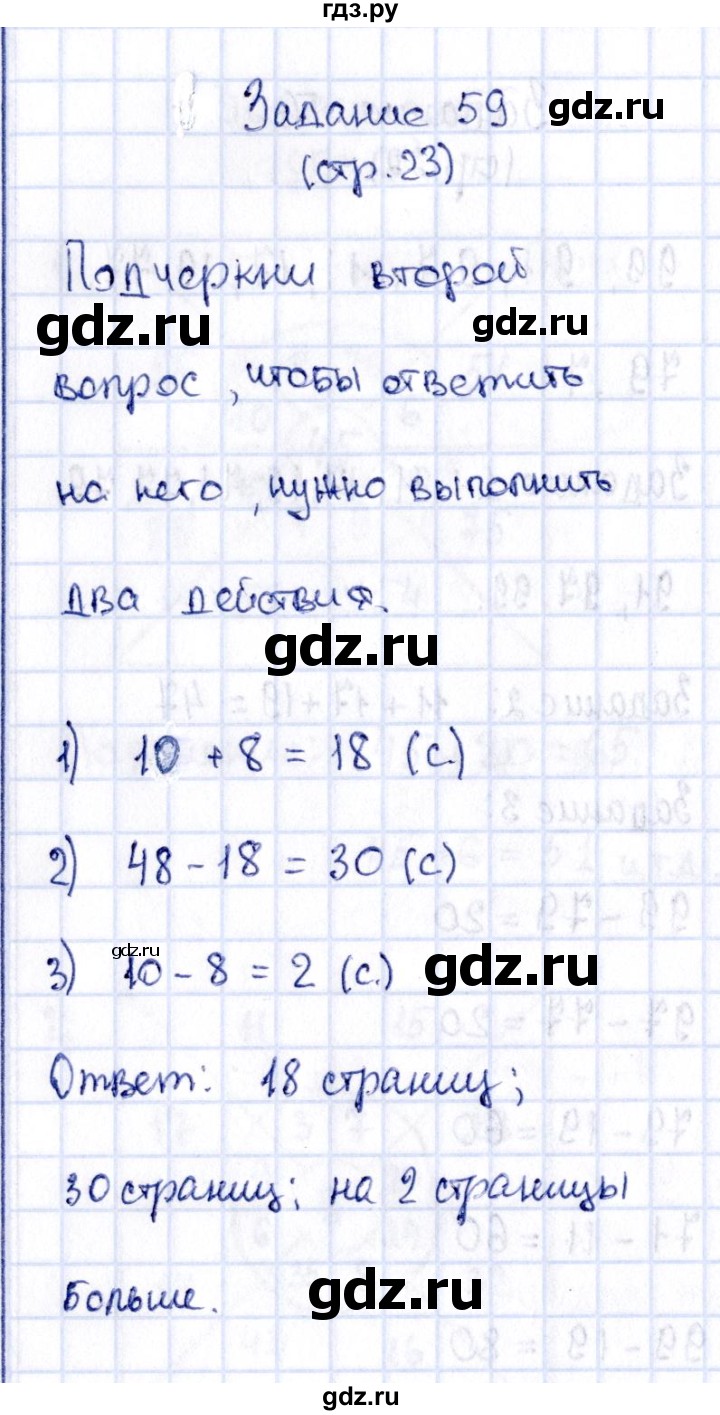 гдз.ру
Задание 59 gdz.ru
(стр. 23)
Подчеркни второй
gdz.ru gdz.ru
вопрос, чтобы ответить
на него, нужно выполнить
два действия.
gdz.ru
1) 10 + 8 = 18 (с.)
2) 48 - 18 = 30 (с)
gdz.ru
3) 10 - 8 = 2 (с.) gdz.ru
Ответ: 18 страниц;
30 страниц; на 2 страницы
больше. gdz.ru
gdz.ru